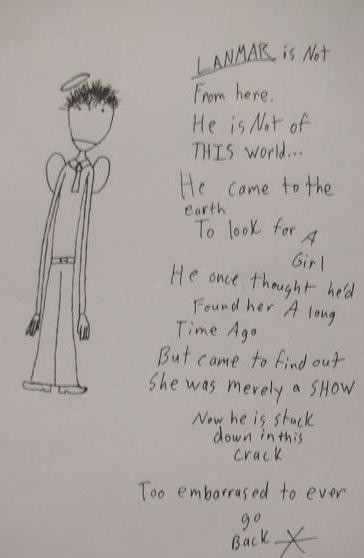 LANMAR is Not
From here.
He is Not of
THIS world...
He came to the
earth
To look for A
Girl
He once thought he'd
Found her A long
Time Ago
But came to find out
She was merely a SHOW
Now he is stuck
down in this
crack
Too embarrased to ever
go
Back